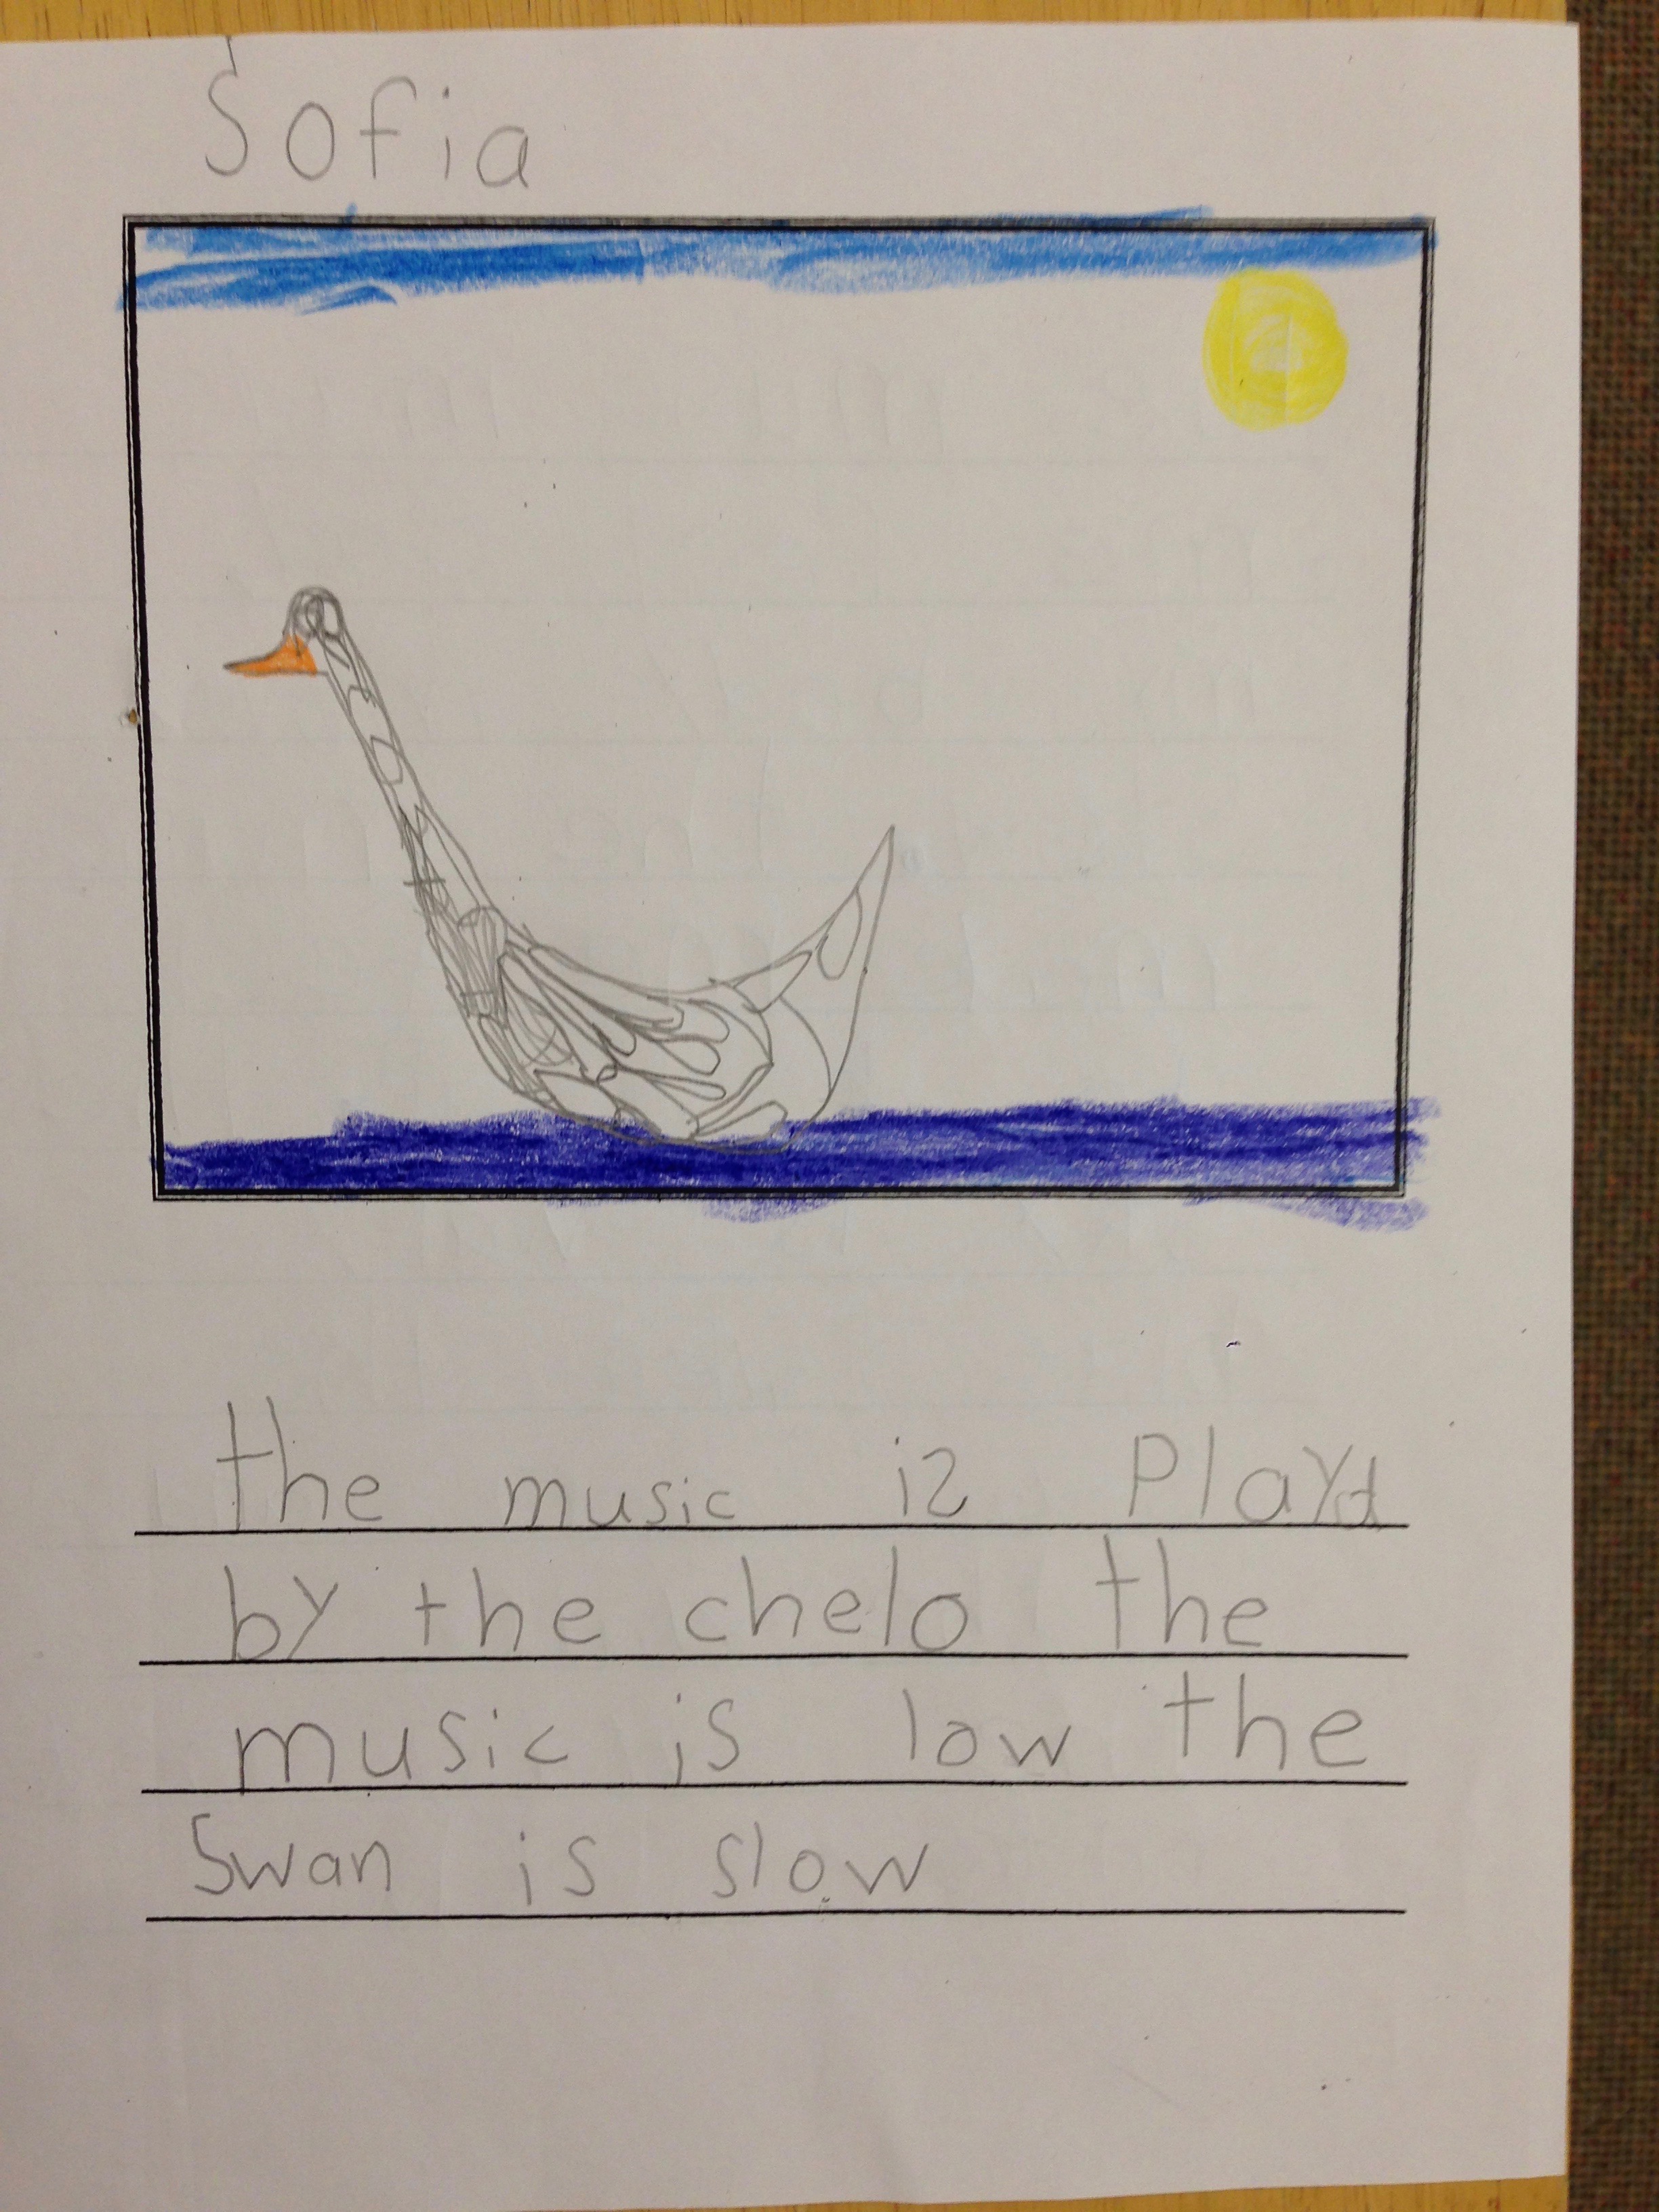 Sofia
the music is Playd
by the chelo the
music is low the
Swan is slow